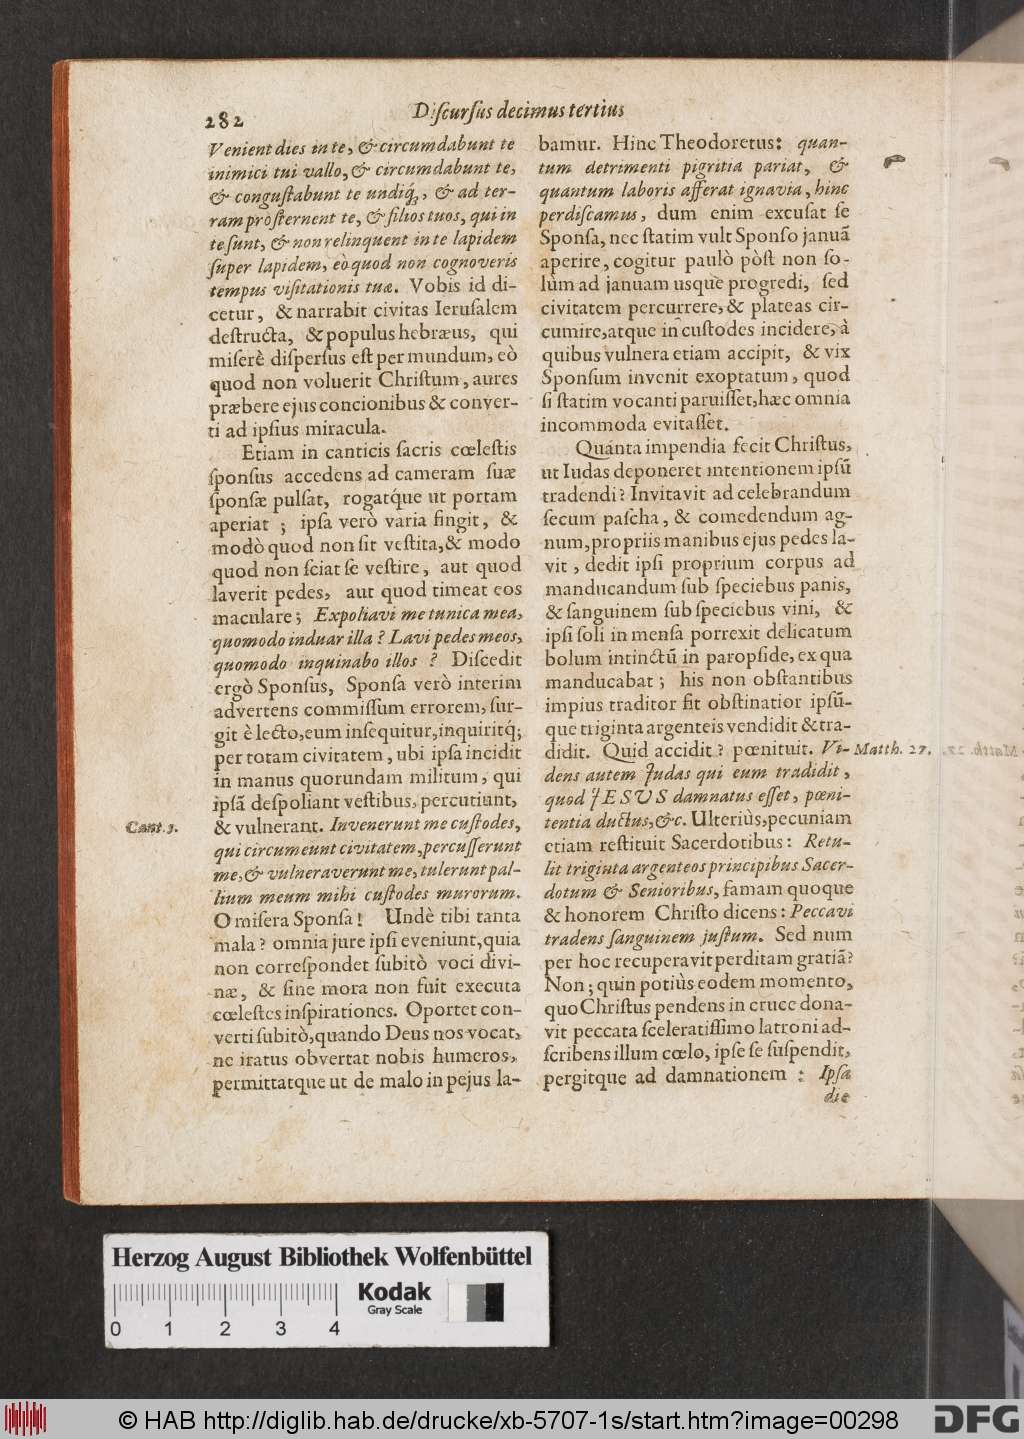 282
Discursus decimus tertius
Venient dies in te, & circumdabunt te
inimici tui vallo, & circumdabunt te,
& congustabunt te undiq́ꝫ, & ad ter-
ram prosternent te, & filios tuos, qui in
te sunt, & non relinquent in te lapidem
super lapidem, eò quod non cognoveris
tempus visitationis tuæ. Vobis id di-
cetur, & narrabit civitas Ierusalem
destructa, & populus hebræus, qui
miserè dispersus est per mundum, eò
quod non voluerit Christum, aures
præbere ejus concionibus & conver-
ti ad ipsius miracula.
Etiam in canticis sacris cœlestis
sponsus accedens ad cameram suæ
sponsæ pulsat, rogatq́ue ut portam
aperiat ; ipsa verò varia fingit, &
modò quod non sit vestita, & modo
quod non sciat se vestire, aut quod
laverit pedes, aut quod timeat eos
maculare; Expoliavi me tunica mea,
quomodo induar illa ? Lavi pedes meos,
quomodo inquinabo illos ? Discedit
ergò Sponsus, Sponsa verò interim
advertens commissum errorem, sur-
git è lecto, eum insequitur, inquiritq́;
per totam civitatem, ubi ipsa incidit
in manus quorundam militum, qui
ipsã despoliant vestibus, percutiunt,
Cant. 3.
& vulnerant. Invenerunt me custodes,
qui circumeunt civitatem, percusserunt
me, & vulneraverunt me, tulerunt pal-
lium meum mihi custodes murorum.
O misera Sponsa! Undè tibi tanta
mala? omnia jure ipsi eveniunt, quia
non correspondet subitò voci divi-
næ, & sine mora non fuit executa
cœlestes inspirationes. Oportet con-
verti subitò, quando Deus nos vocat,
ne iratus obvertat nobis humeros,
permittatque ut de malo in pejus la-
bamur. Hinc Theodoretus: quan-
tum detrimenti pigritia pariat, &
quantum laboris afferat ignavia, hinc
perdiscamus, dum enim excusat se
Sponsa, nec statim vult Sponso januã
aperire, cogitur paulò pòst non so-
lùm ad januam usque progredi, sed
civitatem percurrere, & plateas cir-
cumire, atque in custodes incidere, à
quibus vulnera etiam accipit, & vix
Sponsum invenit exoptatum, quod
si statim vocanti paruisset, hæc omnia
incommoda evitasset.
Quanta impendia fecit Christus,
ut Iudas deponeret intentionem ipsũ
tradendi? Invitavit ad celebrandum
secum pascha, & comedendum ag-
num, propriis manibus ejus pedes la-
vit, dedit ipsi proprium corpus ad
manducandum sub speciebus panis,
& sanguinem sub speciebus vini, &
ipsi soli in mensa porrexit delicatum
bolum intinctũ in paropside, ex qua
manducabat ; his non obstantibus
impius traditor fit obstinatior ipsũ-
que triginta argenteis vendidit & tra-
didit. Quid accidit ? pœnituit. Vi-
Matth. 27.
dens autem Judas qui eum tradidit,
quod JESUS damnatus esset, pœni-
tentia ductus, &c. Ulteriùs, pecuniam
etiam restituit Sacerdotibus: Retu-
lit triginta argenteos principibus Sacer-
dotum & Senioribus, famam quoque
& honorem Christo dicens: Peccavi
tradens sanguinem justum. Sed num
per hoc recuperavit perditam gratiã?
Non; quin potiùs eodem momento,
quo Christus pendens in cruce dona-
vit peccata sceleratissimo latroni ad-
scribens illum cœlo, ipse se suspendit,
pergitque ad damnationem : Ipsa
die
Herzog August Bibliothek Wolfenbüttel
Kodak
Gray Scale
0 1 2 3 4
© HAB http://diglib.hab.de/drucke/xb-5707-1s/start.htm?image=00298
DFG